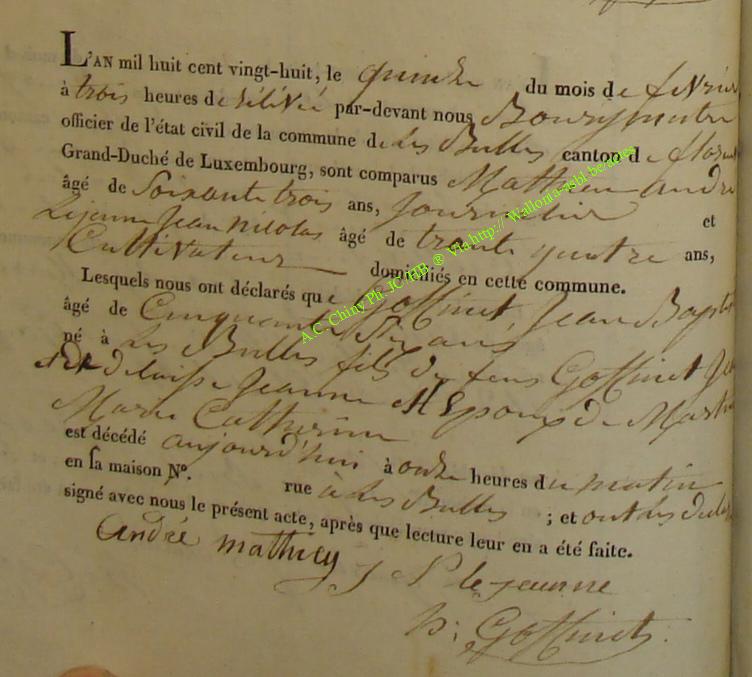 L'AN mil huit cent vingt-huit, le quinze du mois de février
à trois heures de rélévée par-devant nous Bourgmestre
officier de l'état civil de la commune de Les Bulles canton de
Grand-Duché de Luxembourg, sont comparus Mathieu andré
âgé de Soixante trois ans, Journalier et
Lejeune Jean nicolas âgé de trente quatre ans,
Cultivateur domiciliés en cette commune.
Lesquels nous ont déclarés que Goffinet, Jean Bapt
âgé de Cinquante ans
né à Les Bulles fils de feus Goffinet Jea
Jeanne Epoux de Marti
Marie Catherine
est décédé aujourd'hui à onze heures du matin
en sa maison N°. rue à Les Bulles ; et ont
signé avec nous le présent acte, après que lecture leur en a été faite.
André mathieu J N le jeune
Goffinet
A.C. Chiny Ph. JC HB ® Via http://Wallonia-asbl.be/actes